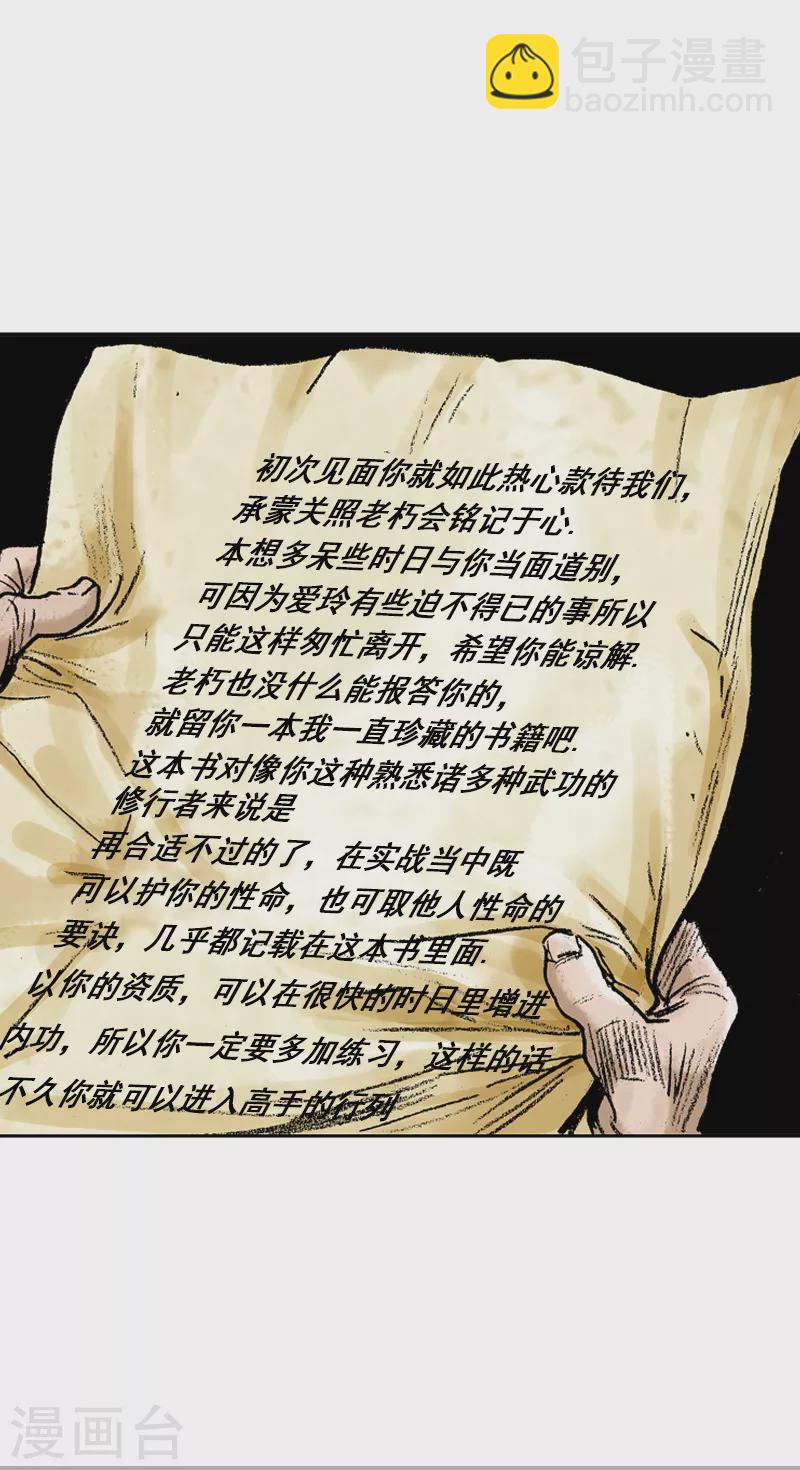 包子漫畫
baozimh.com
初次见面你就如此热心款待我们，
承蒙关照老朽会铭记于心.
本想多呆些时日与你当面道别，
可因为爱玲有些迫不得已的事所以
只能这样匆忙离开，希望你能谅解.
老朽也没什么能报答你的，
就留你一本我一直珍藏的书籍吧.
这本书对像你这种熟悉诸多种武功的
修行者来说是
再合适不过的了，在实战当中既
可以护你的性命，也可取他人性命的
要诀，几乎都记载在这本书里面.
以你的资质，可以在很快的时日里增进
内功，所以你一定要多加练习，这样的话
不久你就可以进入高手的行列
漫画台